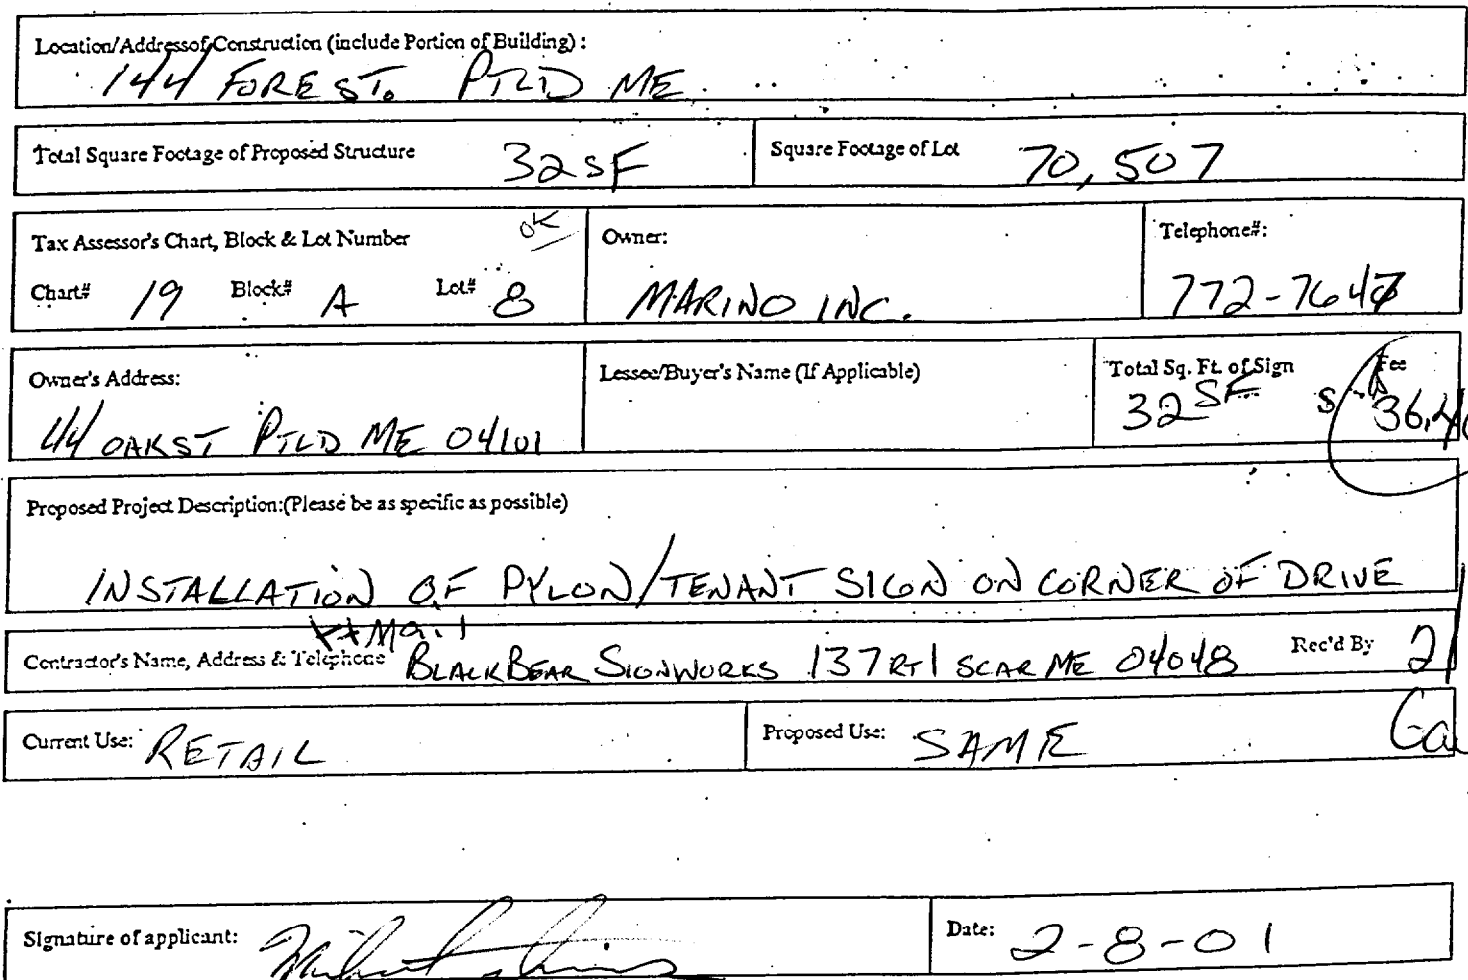 Location/Addressof Construction (include Portion of Building) :
144 FOREST. PTLD ME
Total Square Footage of Proposed Structure 32SF Square Footage of Lot 70,507
Tax Assessor's Chart, Block & Lot Number OK Owner: Telephone#:
Chart# 19 Block# A Lot# 8 MARINO INC. 772-7647
Owner's Address: Lessee/Buyer's Name (If Applicable) Total Sq. Ft. of Sign Fee
44 OAK ST PTLD ME 04101 32 SF $ 36.40
Proposed Project Description:(Please be as specific as possible)
INSTALLATION OF PYLON/TENANT SIGN ON CORNER OF DRIVE
**Mail
Contractor's Name, Address & Telephone BLACKBEAR SIGNWORKS 137 RT 1 SCAR ME 04048 Rec'd By
Current Use: RETAIL Proposed Use: SAME
Signature of applicant: Date: 2-8-01